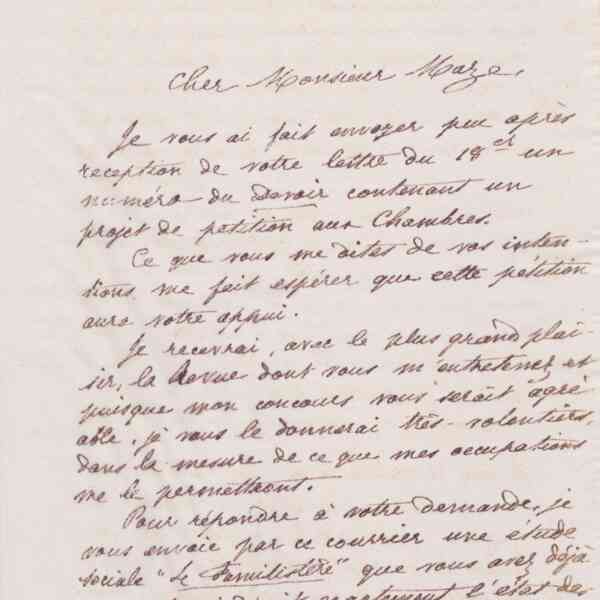 Cher Monsieur Maze,
Je vous ai fait envoyer peu après
reception de votre lettre du 18 ct un
numéro du Devoir contenant un
projet de pétition aux Chambres.
Ce que vous me dites de vos inten-
tions me fait espérer que cette pétition
aura votre appui.
Je recevrai, avec le plus grand plai-
sir, la Revue dont vous m'entretenez et
puisque mon concours vous serait agré
able, je vous le donnerai très-volontiers,
dans la mesure de ce que mes occupations
me le permettront.
Pour répondre à votre demande, je
vous envoie par ce courrier une étude
sociale "Le Familistère" que vous avez déjà
l'état des